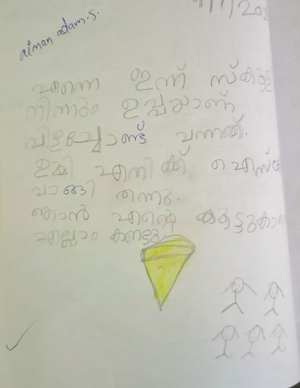 aiman adam.s.
എന്നെ ഇന്ന് സ്കൂളിൽ
നിന്നും ഉപ്പയാണ്
വിളിച്ചോണ്ട് വന്നത്.
ഉമ്മി എനിക്ക് ഐസ്
വാങ്ങി തന്നു.
ഞാൻ എന്റെ കൂട്ടുകാരെ
എല്ലാം കണ്ടു